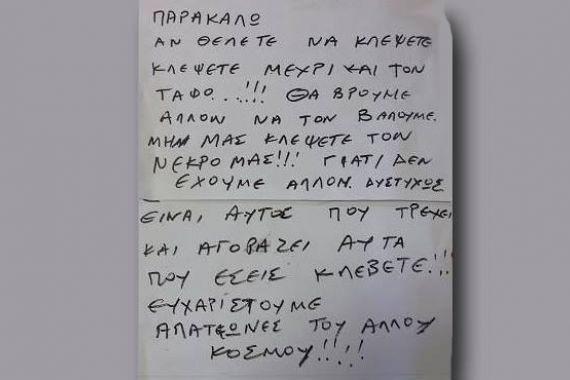 ΠΑΡΑΚΑΛΩ
ΑΝ ΘΕΛΕΤΕ ΝΑ ΚΛΕΨΕΤΕ
ΚΛΕΨΕΤΕ ΜΕΧΡΙ ΚΑΙ ΤΟΝ
ΤΑΦΟ...!!! ΘΑ ΒΡΟΥΜΕ
ΑΛΛΟΝ ΝΑ ΤΟΝ ΒΑΛΟΥΜΕ.
ΜΗΝ ΜΑΣ ΚΛΕΨΕΤΕ ΤΟΝ
ΝΕΚΡΟ ΜΑΣ!!! ΓΙΑΤΙ ΔΕΝ
ΕΧΟΥΜΕ ΑΛΛΟΝ. ΔΥΣΤΥΧΩΣ
ΕΙΝΑΙ ΑΥΤΟΣ ΠΟΥ ΤΡΕΧΕΙ
ΚΑΙ ΑΓΟΡΑΖΕΙ ΑΥΤΑ
ΠΟΥ ΕΣΕΙΣ ΚΛΕΒΕΤΕ.!!!
ΕΥΧΑΡΙΣΤΟΥΜΕ
ΑΠΑΤΕΩΝΕΣ ΤΟΥ ΑΛΛΟΥ
ΚΟΣΜΟΥ!!!!